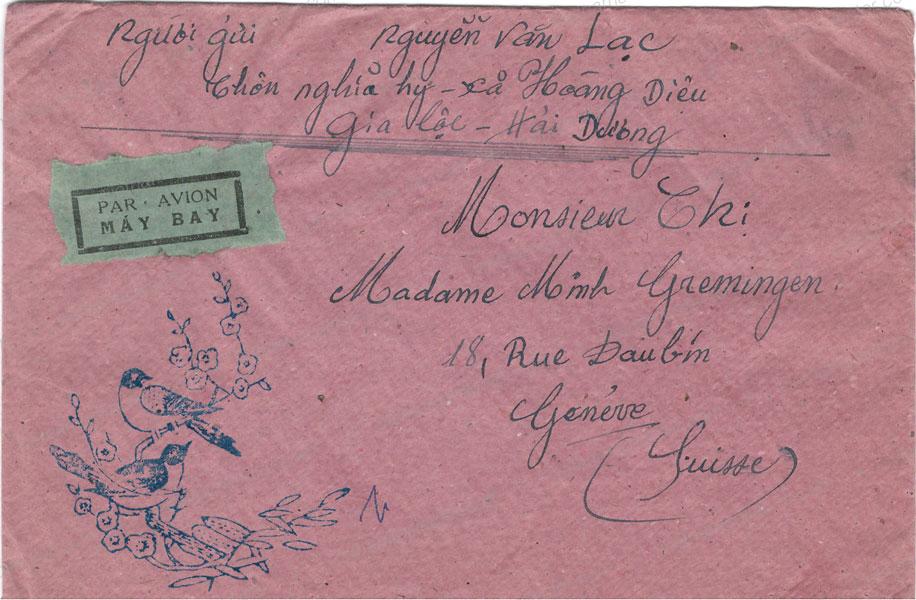 Người gửi Nguyễn Văn Lạc
Thôn nghĩa hy - xã Hoàng Diệu
Gia lộc - Hải Dương
PAR AVION
MÁY BAY
Monsieur Chi
Madame Minh Gremingen
18, Rue Daubin
Genève
(Suisse)